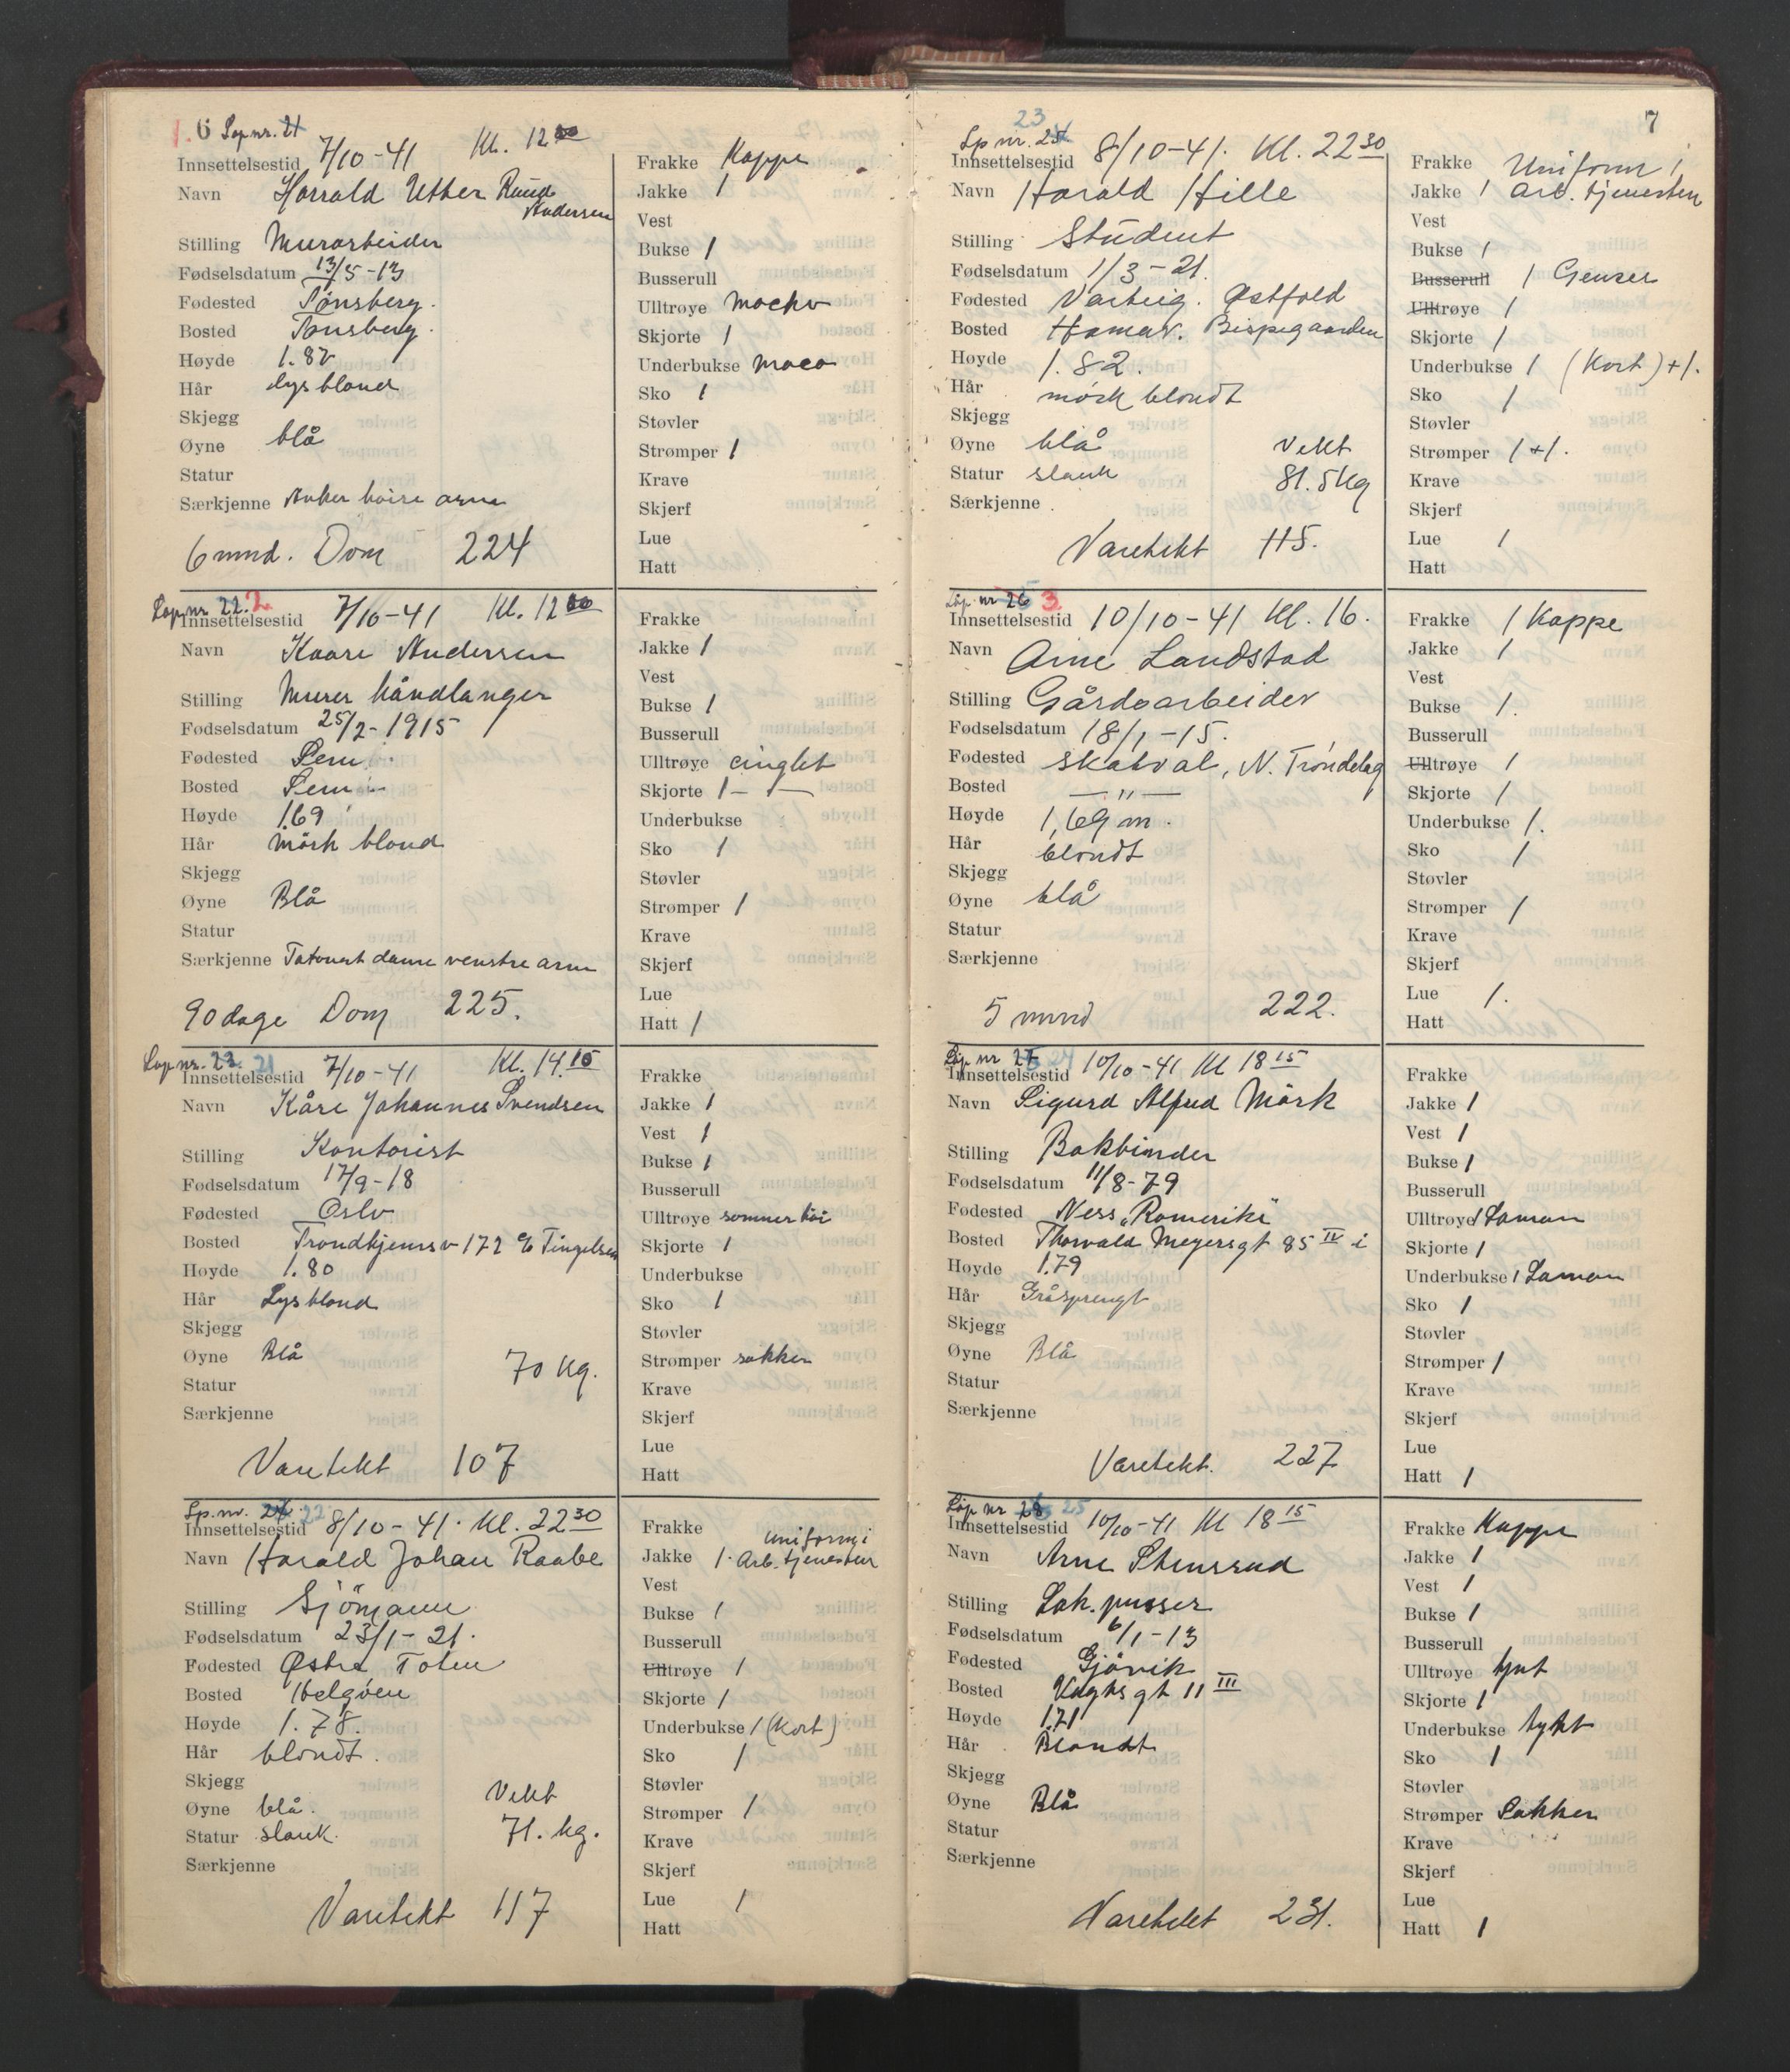 1. 6 Løp nr. 21
Innsettelsestid 7/10-41 Kl. 12 00
Navn Harrald Uther Ruud
Andersen
Stilling Murarbeider
Fødselsdatum 13/5-13
Fødested Tønsberg.
Bosted Tønsberg.
Høyde 1.82
Hår lys blond
Skjegg
Øyne blå
Statur
Særkjenne Anker høire arm
6 mnd. Dom 224
Frakke Kappe
Jakke 1
Vest
Bukse 1
Busserull
Ulltrøye Mocko
Skjorte 1
Underbukse Maco
Sko 1
Støvler
Strømper 1
Krave
Skjerf
Lue
Hatt
Løp nr 22. 2
Innsettelsestid 7/10-41 Kl. 12 00
Navn Kaare Andersen
Stilling Murer håndlanger
Fødselsdatum 25/2-1915
Fødested Sem
Bosted Sem
Høyde 1.69
Hår Mörk blond
Skjegg
Øyne Blå
Statur
Særkjenne Tatovert dame venstre arm
90 dage Dom 225.
Frakke
Jakke 1
Vest
Bukse 1
Busserull
Ulltrøye cinglet
Skjorte 1 — —
Underbukse
Sko 1
Støvler
Strømper 1
Krave
Skjerf
Lue
Hatt 1
Løp nr. 23 21
Innsettelsestid 7/10-41 Kl. 14.15
Navn Kåre Johannes Svendsen
Stilling Kontorist
Fødselsdatum 17/9-18
Fødested Oslo
Bosted Trondhjemsv 172 c/o Tingelsen
Høyde 1.80
Hår Lys blond
Skjegg
Øyne Blå 70 kg.
Statur
Særkjenne
Varetekt 107
Frakke
Jakke 1
Vest 1
Bukse 1
Busserull
Ulltrøye sommertøi
Skjorte 1
Underbukse
Sko 1
Støvler
Strømper sokker
Krave
Skjerf
Lue
Hatt
Lp. nr. 24 22
Innsettelsestid 8/10-41. Kl. 22 30
Navn Harald Johan Raabe
Stilling Sjömann
Fødselsdatum 23/1-21.
Fødested Østre Toten
Bosted Helgöen
Høyde 1.78.
Hår blondt.
Skjegg Vekt
Øyne blå.
Statur slank. 71. kg.
Særkjenne
Varetekt 117
Frakke uniform i
Jakke 1. Arb. tjenesten
Vest
Bukse 1
Busserull
Ulltrøye 1
Skjorte 1
Underbukse 1 (Kort)
Sko 1
Støvler
Strømper 1
Krave
Skjerf
Lue 1
Hatt
7
23
Lp nr. 25
Innsettelsestid 8/10-41. Kl. 22 30
Navn Harald Hille
Stilling Student
Fødselsdatum 1/3-21.
Fødested Varteig. Østfold
Bosted Hamar. Bispegaarden
Høyde 1.82.
Hår mörk blondt
Skjegg
Øyne blå Vekt
Statur slank 81.5 kg
Særkjenne
Varetekt 115.
Frakke Uniform i
Jakke 1 Arb. tjenesten
Vest
Bukse 1
Busserull 1 Genser
Ulltrøye 1
Skjorte 1
Underbukse 1 (Kort)+1.
Sko 1
Støvler
Strømper 1+1.
Krave
Skjerf
Lue 1
Hatt
Løp nr 26 3
Innsettelsestid 10/10-41 Kl. 16.
Navn Arne Landstad
Stilling Gårdsarbeider
Fødselsdatum 18/1-15.
Fødested Skatval, N. Tröndelag
Bosted — " —
Høyde 1,69 m.
Hår blondt
Skjegg
Øyne blå
Statur
Særkjenne
5 mnd 222.
Frakke 1 Kappe
Jakke 1
Vest
Bukse 1.
Busserull
Ulltrøye 1
Skjorte 1
Underbukse 1.
Sko 1
Støvler
Strømper 1
Krave
Skjerf
Lue 1.
Hatt
Løp nr 27 24
Innsettelsestid 10/10-41 Kl 18 15
Navn Sigurd Alfred Mörk
Stilling Bokbinder
Fødselsdatum 11/8-79
Fødested Ness "Romerike"
Bosted Thorvald Meyersgt 85 IV i
Høyde 1.79
Hår Gråsprengt
Skjegg
Øyne Blå
Statur
Særkjenne
Varetekt. 227
Frakke
Jakke 1
Vest 1
Bukse 1
Busserull
Ulltrøye 1 Laman
Skjorte 1
Underbukse 1 Laman
Sko 1
Støvler
Strømper 1
Krave
Skjerf
Lue
Hatt 1
Løp nr 28 25
Innsettelsestid 10/10-41 Kl 18 15
Navn Arne Stensrud
Stilling Lok. pusser
Fødselsdatum 6/1-13
Fødested Gjövik
Bosted Vogtsgt 11 III
Høyde 1.71
Hår Blondt
Skjegg
Øyne Blå
Statur
Særkjenne
Varetekt 231.
Frakke Kappe
Jakke 1
Vest 1
Bukse 1
Busserull
Ulltrøye tynt
Skjorte 1
Underbukse tykt
Sko 1
Støvler
Strømper Sokker
Krave
Skjerf
Lue
Hatt 1